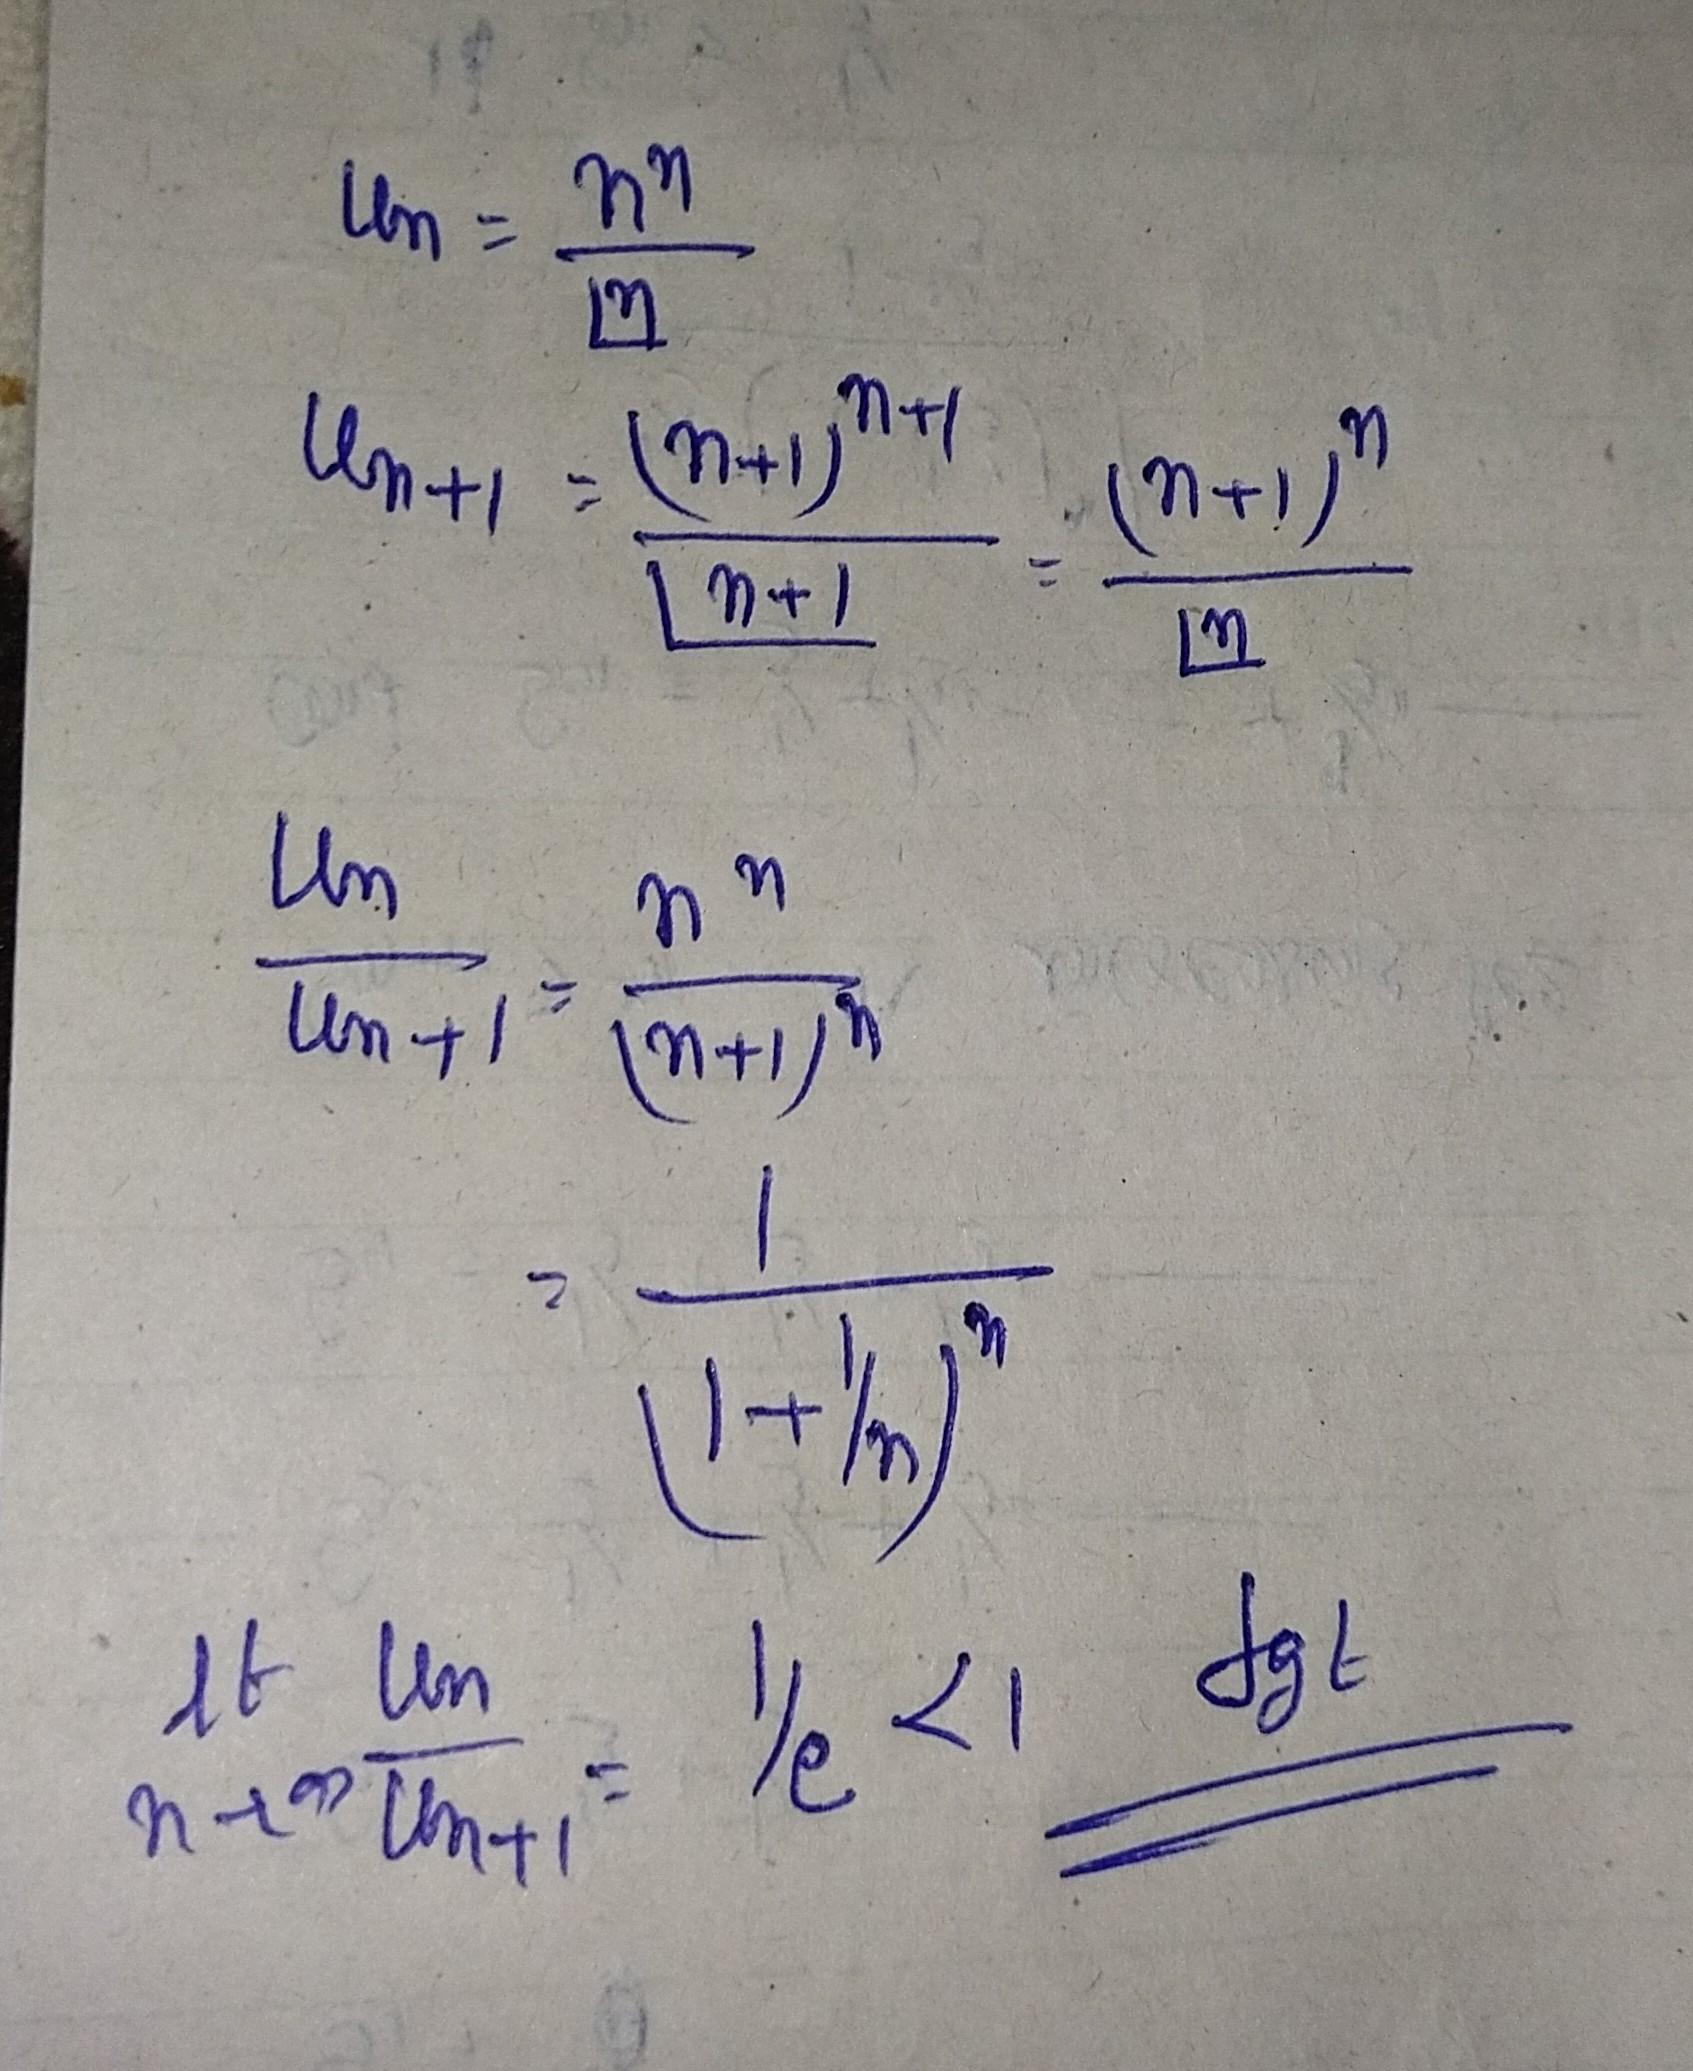 un = n^n / |n
un+1 = (n+1)^n+1 / |n+1 = (n+1)^n / |n
un / un+1 = n^n / (n+1)^n
= 1 / (1+1/n)^n
lt n→∞ un / un+1 = 1/e < 1 dgt